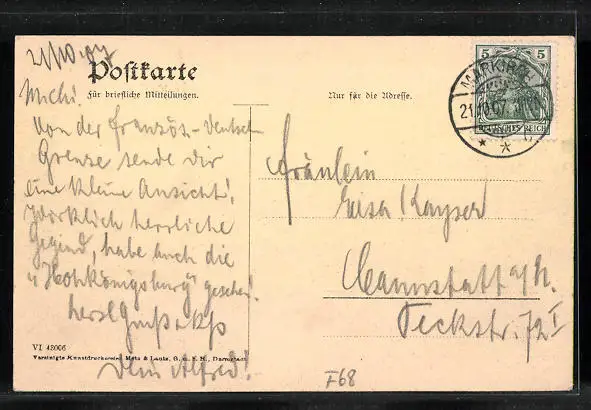 21/10.07
Postkarte
Für briefliche Mitteilungen.
Nur für die Adresse.
5 5
MARKIRCH
21.10.07
DEUTSCHES REICH
Michi!
Von der französ.-deutschen
Grenze sende dir
eine kleine Ansicht!
Wirklich herrliche
Gegend, habe auch die
"Hohkönigsburg" gesehen!
herzl Gruß & Kß
Dein Alfred!
Fräulein
Luisa Kayser
Cannstatt a/N.
Teckstr. 72 I
VI 43006
Vereinigte Kunstdruckereien Metz & Lautz, G. m. b. H., Darmstadt
F68